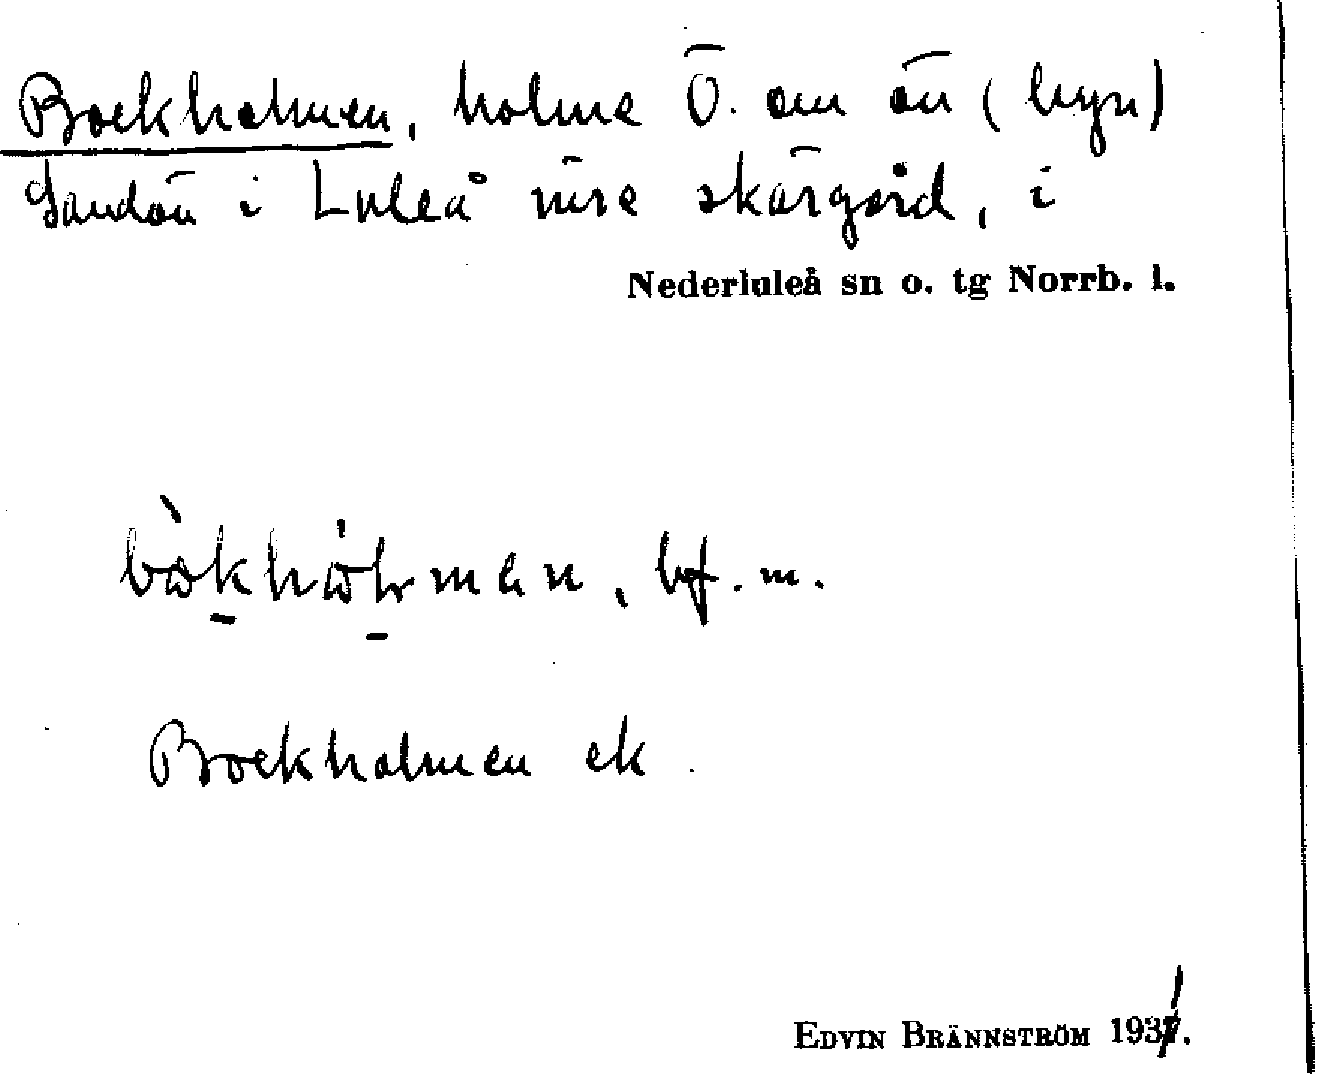 Bockholmen, holme Ö. om ön (byn)
Sandön i Luleå inre skärgård, i
Nederluleå sn o. tg Norrb. l.
bf. m.
Bockholmen ek.
EDVIN BRÄNNSTRÖM 193